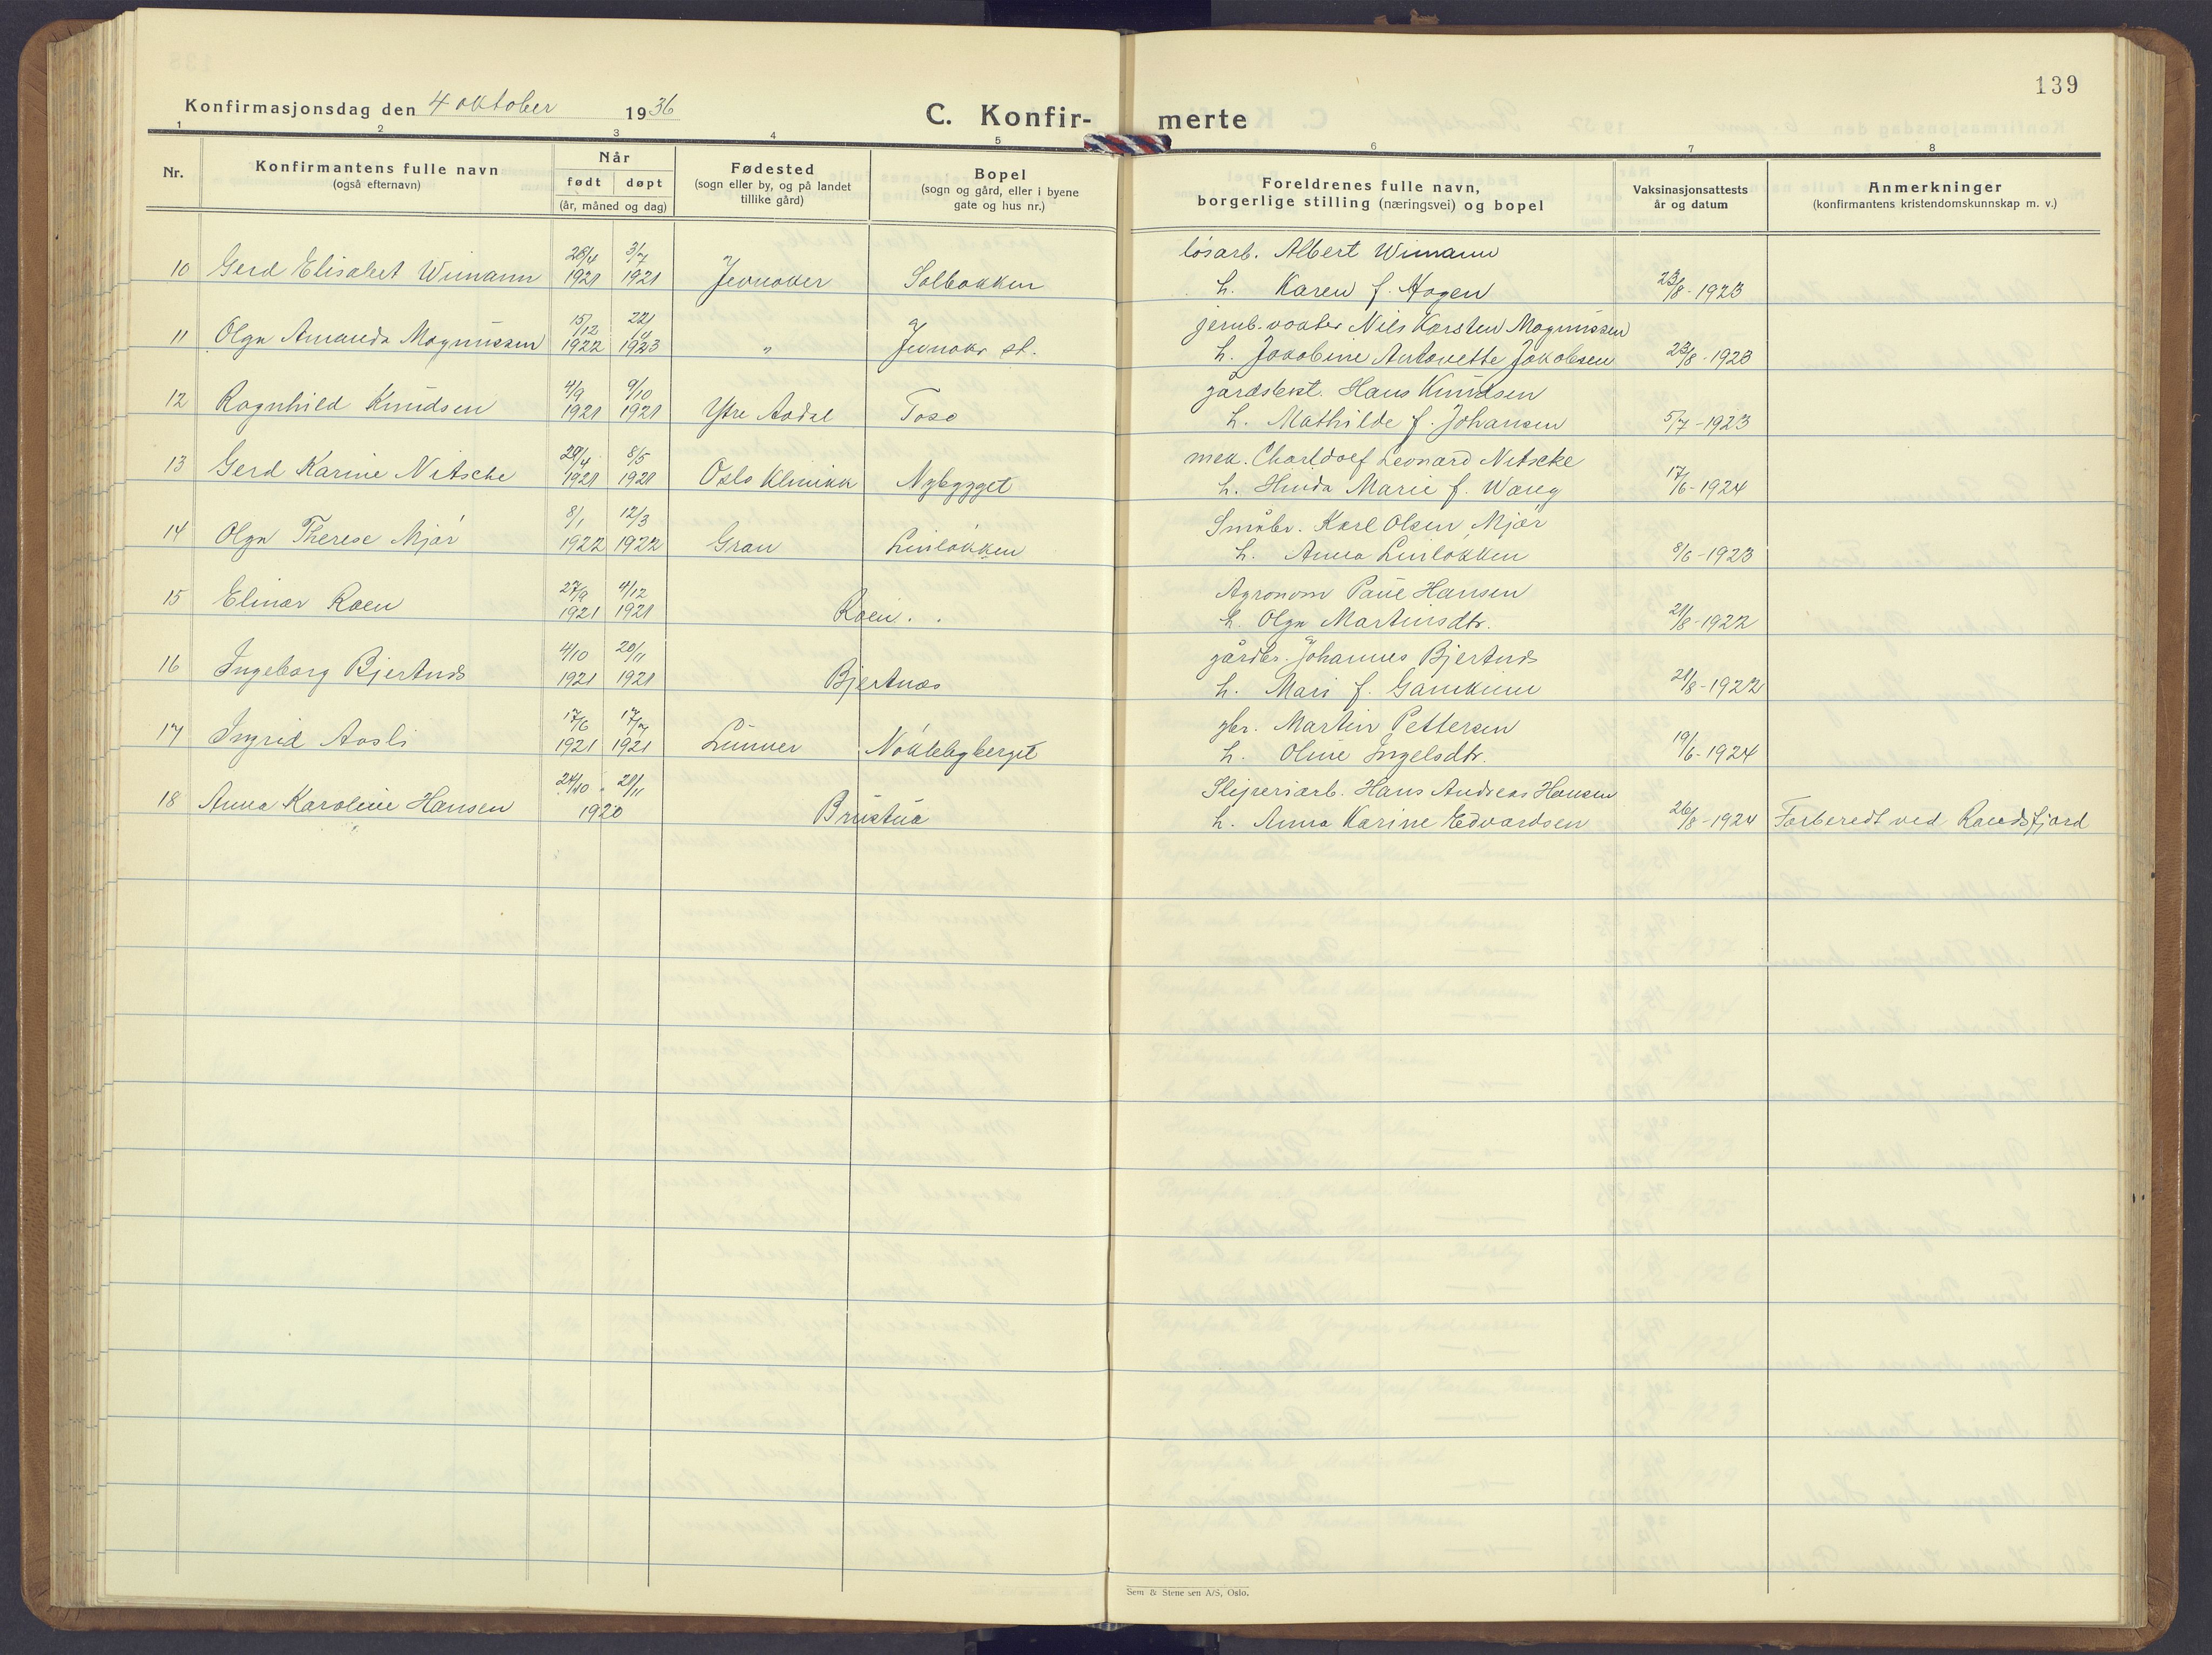 139
Konfirmasjonsdag den 4 oktober 1936
C. Konfir- merte
1 2 3 4 5 6 7 8
Nr.
Konfirmantens fulle navn
(også efternavn)
Når
født døpt
(år, måned og dag)
Fødested
(sogn eller by, og på landet
tillike gård)
Bopel
(sogn og gård, eller i byene
gate og hus nr.)
Foreldrenes fulle navn,
borgerlige stilling (næringsvei) og bopel
Vaksinasjonsattests
år og datum
Anmerkninger
(konfirmantens kristendomskunnskap m. v.)
28/4 3/7 løsarb. Albert Wimann
10 Gerd Elisabet Wimann 1921 1921 Jevnaker Solbakken h. Karen f. Hagen 23/8 - 1923
15/12 22/4 jernb.vokter Nils Karsten Magnussen
11 Olga Amanda Magnussen 1922 1923 " Jevnakr st. h. Jakobine Antonette Jakobsen 23/8 - 1923
4/9 9/10 gårdsbest. Hans Knudsen
12 Ragnhild Knudsen 1921 1921 Ytre Aadal Toso h. Mathilde f. Johansen 5/7 - 1923
29/4 8/5 mek. Charldolf Leonard Nitscke
13 Gerd Karine Nitsche 1921 1921 Oslo Klinikk Nybygget h. Hinda Marie f. Wang 17/6 - 1924
8/1 12/3 Småbr. Karl Olsen Mjør
14 Olga Therese Mjør 1922 1922 Gran Linløkken h. Anna Linløkken 8/6 - 1923
27/9 4/12 Agronom Paul Hansen
15 Elinar Roen 1921 1921 Roen . . h. Olga Martinsdtr. 21/8 - 1922
4/10 20/11 gårdbr. Johannes Bjertnæs
16 Ingeborg Bjertnæs 1921 1921 Bjertnæs h. Mari f. Gamkinn 21/8 - 1922
17/6 17/7 gbr. Martin Pettersen
17 Ingrid Aasli 1921 1921 Lunner Nøklebyberget h. Oline Ingelsdtr. 19/6 - 1924
24/10 - 21/11 Sliperiarb. Hans Andreas Hansen
18 Anna Karoline Hansen 1920 Brustua h. Anna Karine Edvardsen 26/8 - 1924 Forberedt ved Randsfjord
Sem & Stenersen A/S, Oslo.